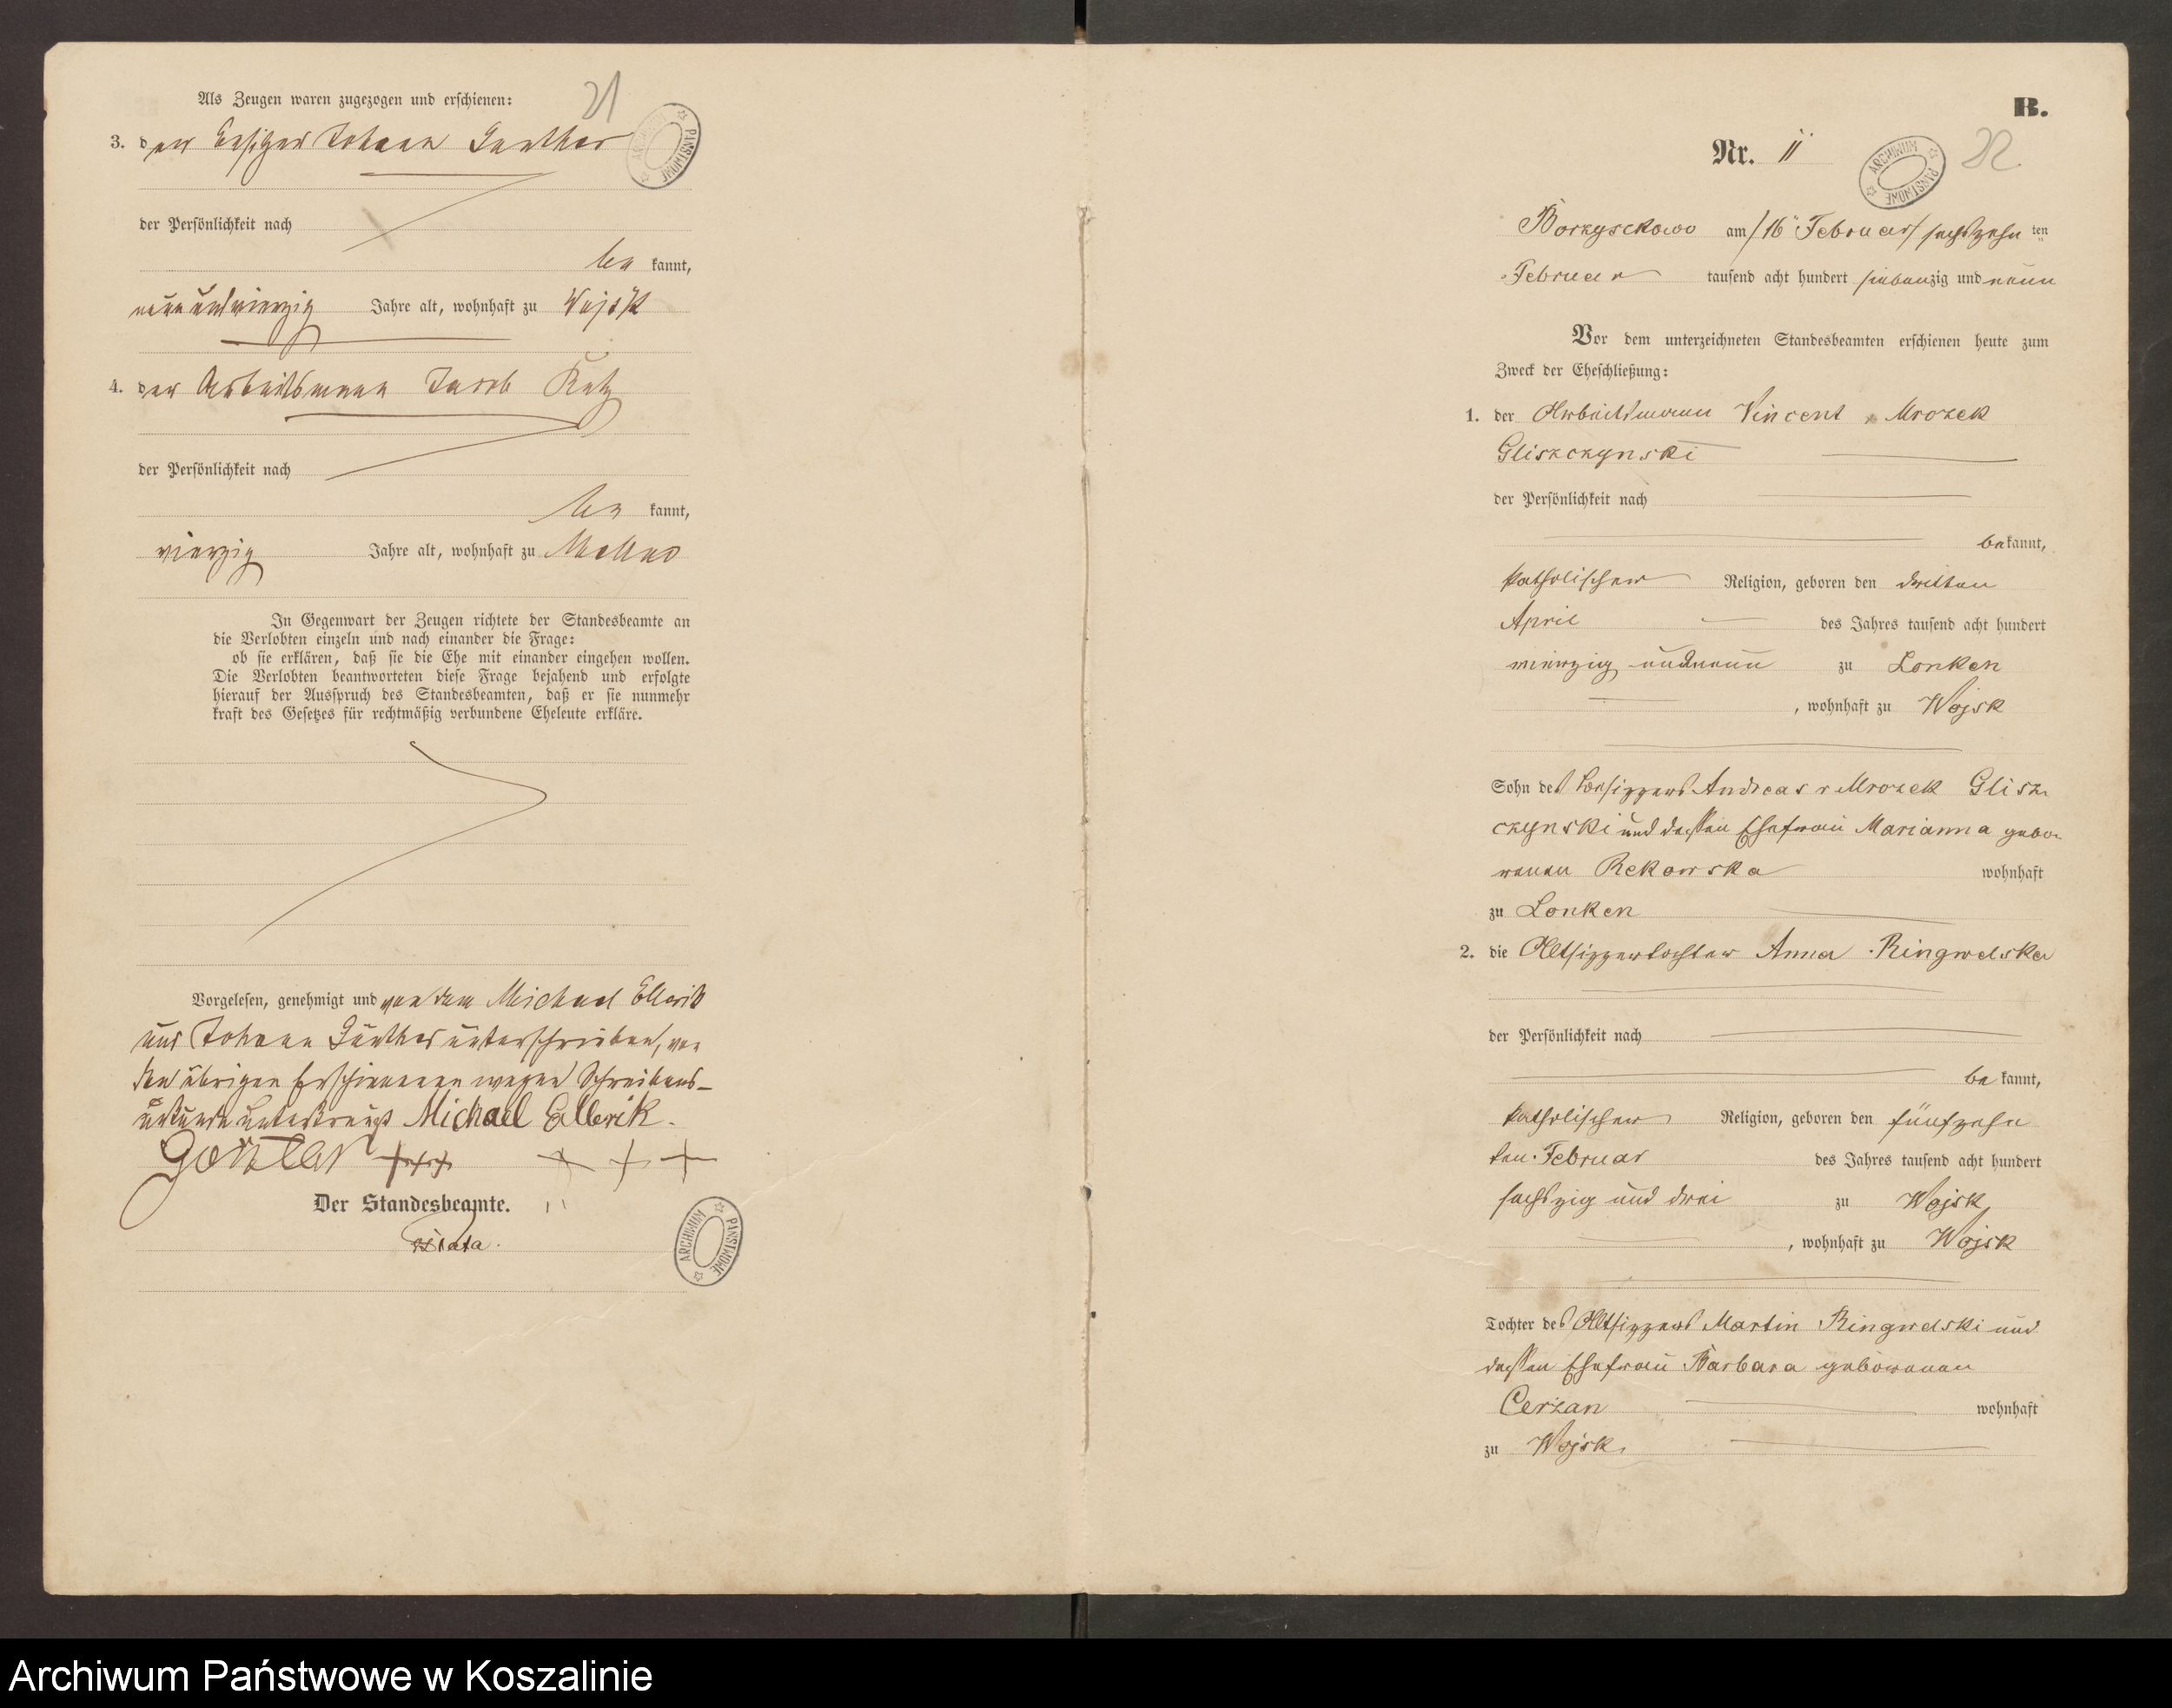 Als Zeugen waren zugezogen und erschienen:
21
3. der Besitzer Johann Günther
der Persönlichkeit nach
be kannt,
neunundvierzig Jahre alt, wohnhaft zu Wojsk
4. der Arbeitsmann Jacob Katz
der Persönlichkeit nach
be kannt,
vierzig Jahre alt, wohnhaft zu
In Gegenwart der Zeugen richtete der Standesbeamte an
die Verlobten einzeln und nach einander die Frage:
ob sie erklären, daß sie die Ehe mit einander eingehen wollen.
Die Verlobten beantworteten diese Frage bejahend und erfolgte
hierauf der Ausspruch des Standesbeamten, daß er sie nunmehr
kraft des Gesetzes für rechtmäßig verbundene Eheleute erkläre.
Vorgelesen, genehmigt und von dem Michael Ellerik
und Johann Günther unterschrieben, von
den übrigen Erschienenen wegen Schreibens-
unkunde unterkreuzt Michael Ellerik.
+++ + + +
Der Standesbeamte.
ARCHIWUM PAŃSTWOWE
B.
Nr. 11
ARCHIWUM PAŃSTWOWE
22
Borzyschkowo am /16 Februar/ sechszehn ten
Februar tausend acht hundert siebenzig und neun
Vor dem unterzeichneten Standesbeamten erschienen heute zum
Zweck der Eheschließung:
1. der Arbeitsmann Vincent v Mrozek
Gliszczynski
der Persönlichkeit nach
be kannt,
katholischer Religion, geboren den dritten
April des Jahres tausend acht hundert
vierzig und neun zu Lonken
, wohnhaft zu Wojsk
Sohn des Besitzers Andreas v Mrozek Glisz
czynski und dessen Ehefrau Marianna gebo
renen Rekowska wohnhaft
zu Lonken
2. die Altsitzertochter Anna Ringwelska
der Persönlichkeit nach
be kannt,
katholischer Religion, geboren den fünfzehn
ten Februar des Jahres tausend acht hundert
sechszig und drei zu Wojsk
, wohnhaft zu Wojsk
Tochter des Altsitzers Martin Ringwelski und
dessen Ehefrau Barbara geborenen
Cerzan wohnhaft
zu Wojsk.
Archiwum Państwowe w Koszalinie